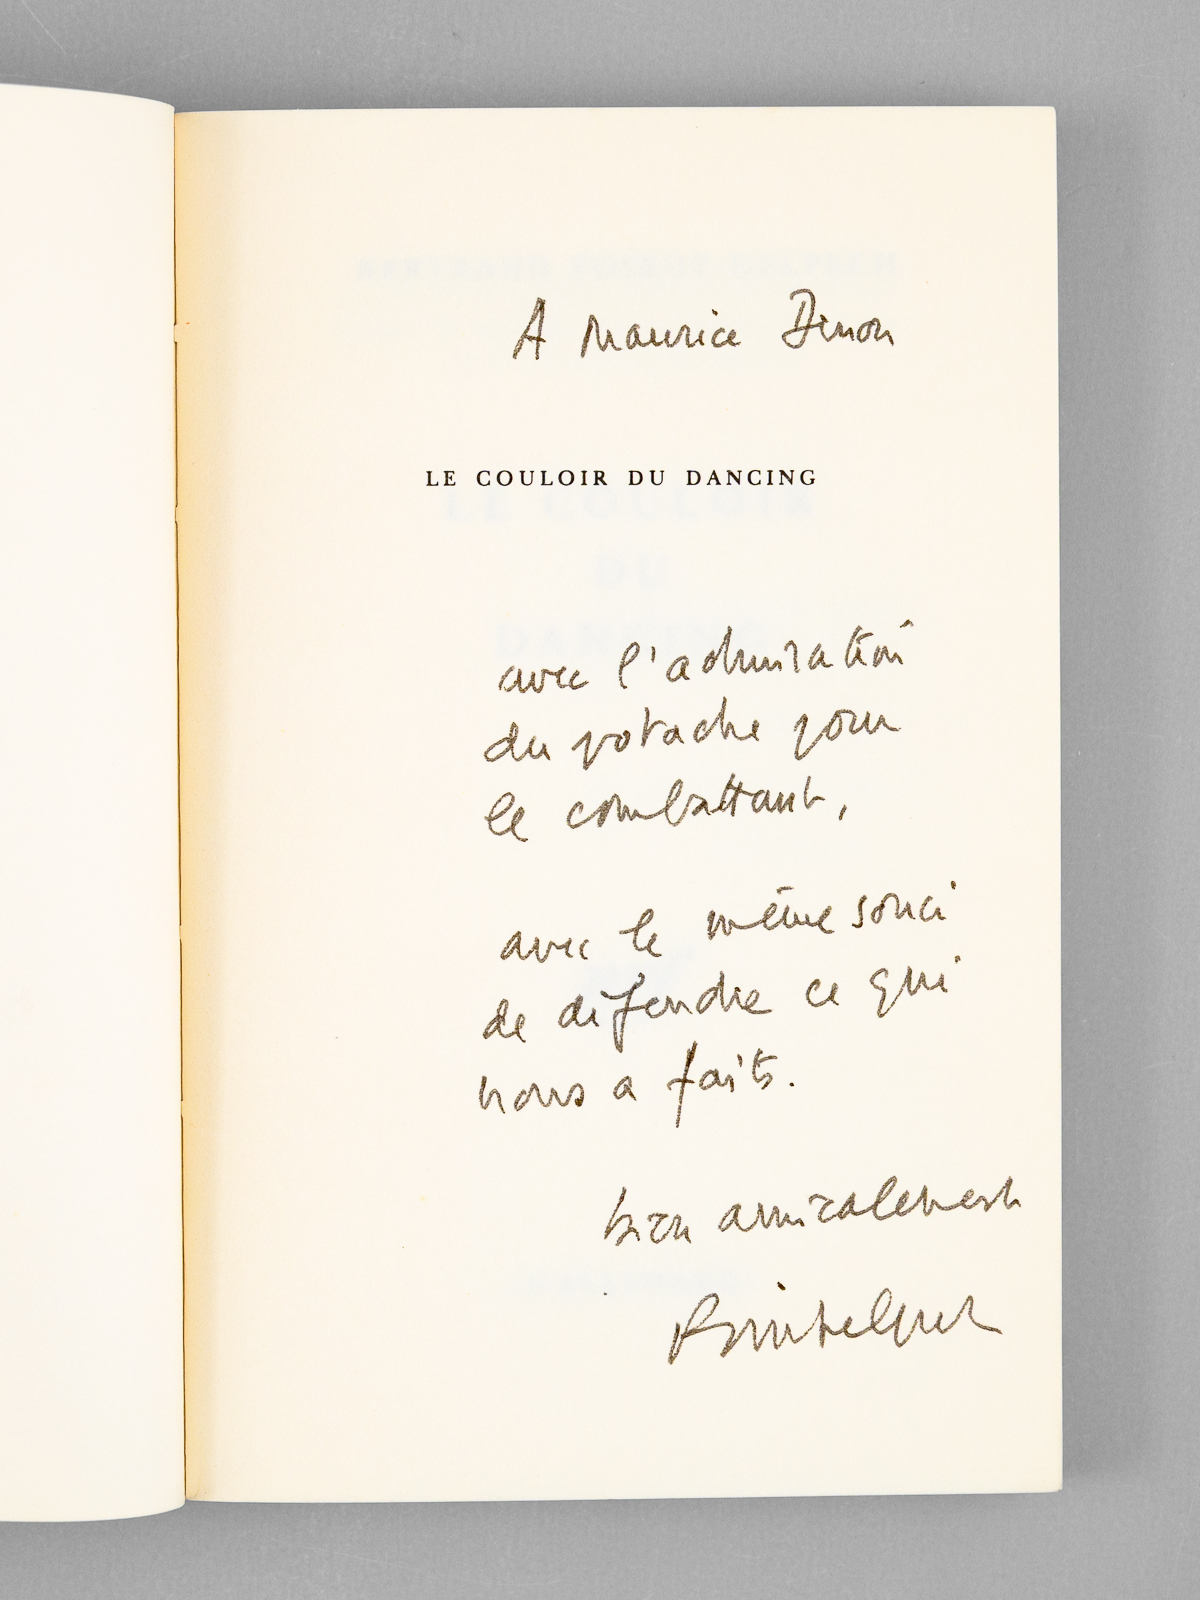 A Maurice Druon
LE COULOIR DU DANCING
avec l'admiration
du potache pour
le combattant,
avec le même souci
de défendre ce qui
nous a faits.
bien amicalement